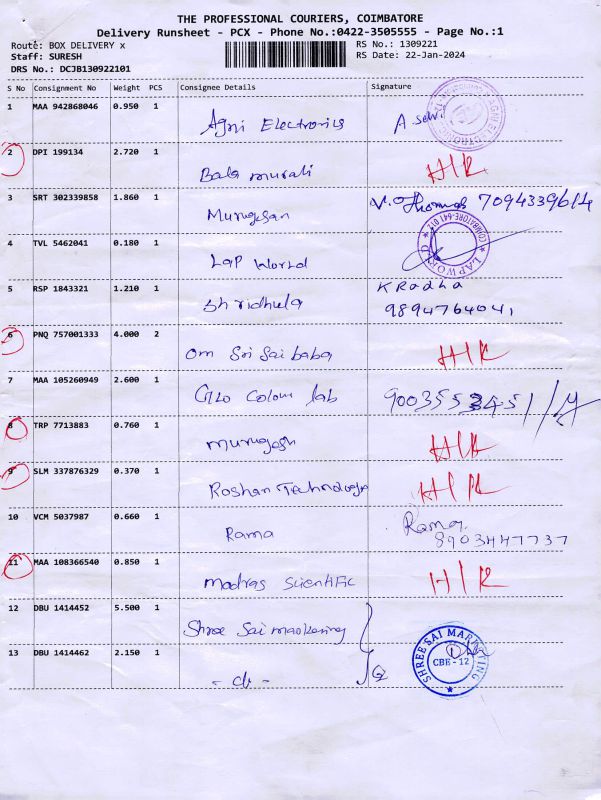 THE PROFESSIONAL COURIERS, COIMBATORE
Delivery Runsheet - PCX - Phone No.:0422-3505555 - Page No.:1
Route: BOX DELIVERY x RS No.: 1309221
Staff: SURESH RS Date: 22-Jan-2024
DRS No.: DCJB130922101
S No Consignment No Weight PCS Consignee Details Signature
1 MAA 942868046 0.950 1 Agni Electronics A. selvi
2 DPI 199134 2.720 1 Bala murali H/R
3 SRT 302339858 1.860 1 Murugesan V. Thomas 7094339614
4 TVL 5462041 0.180 1 Lap World LAP WORLD COIMBATORE-641 012
5 RSP 1843321 1.210 1 Shridhula K Radha
9894764041
6 PNQ 757001333 4.000 2 Om Sri Sai baba H/R
7 MAA 105260949 2.600 1 Colour lab
8 TRP 7713883 0.760 1 Murugesh H/R
9 SLM 337876329 0.370 1 Roshan Technology H/R
10 VCM 5037987 0.660 1 Rama Rama
8903447737
11 MAA 108366540 0.850 1 Madras Scientific H/R
12 DBU 1414452 5.500 1 Shree Sai Marketing
13 DBU 1414462 2.150 1 - do - SHREE SAI MARKETING CBE - 12